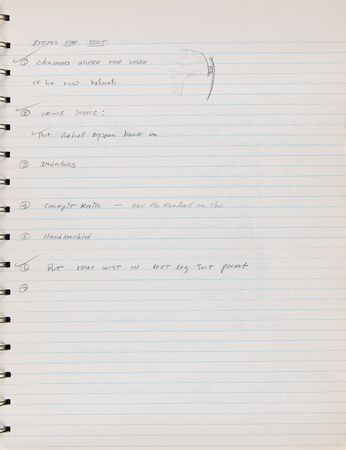 ITEMS FOR SUIT
① CHAMOIS WIPER FOR VISOR
② URINE DEVICE:
Put Relief zipper back in
③ INJECTORS
④ COCKPIT KNIFE — on this
⑤ Handkerchief
⑥ PUT MAE WEST IN LEFT LEG SUIT POCKET
⑦